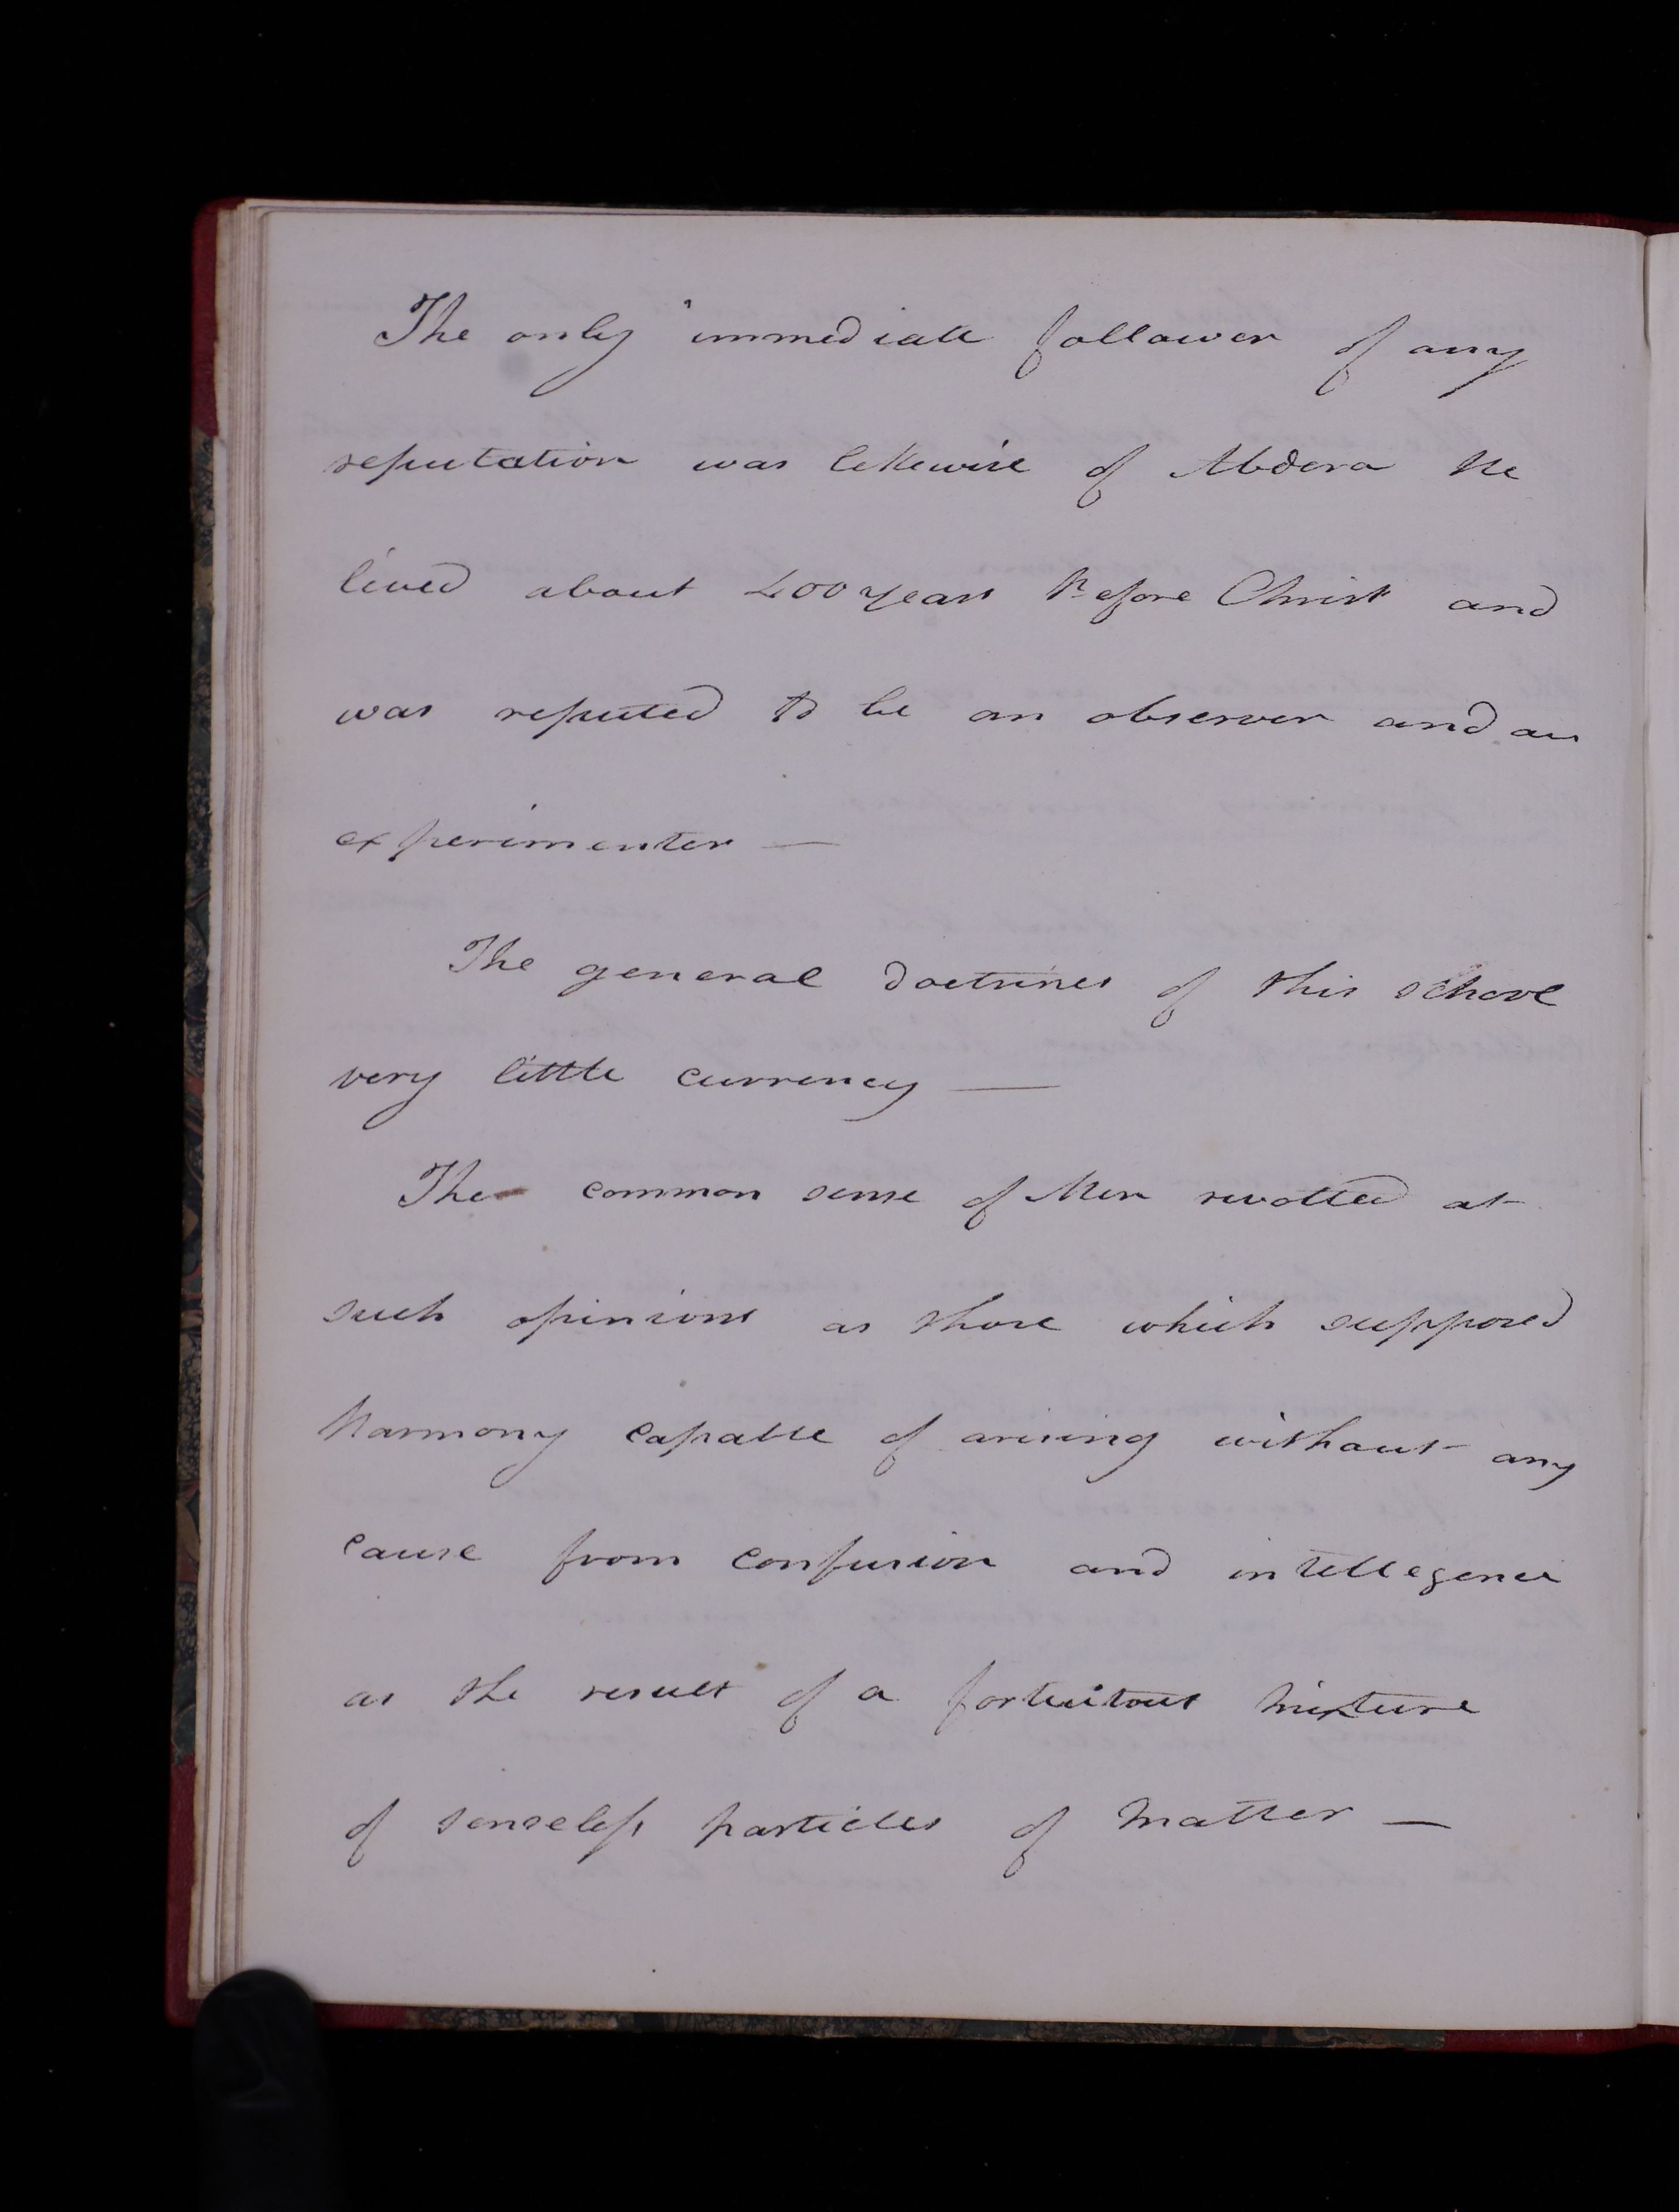 The only immediate follower of any
reputation was likewise of Abdera He
lived about 400 years Before Christ and
was reputed to be an observer and an
experimenter —
The general doctrines of this school
very little currency —
The common sense of Men revolted at
such opinions as those which supposed
Harmony capable of arising without any
cause from confusion and intellegence
as the result of a fortuitous Mixture
of senseless particles of Matter —